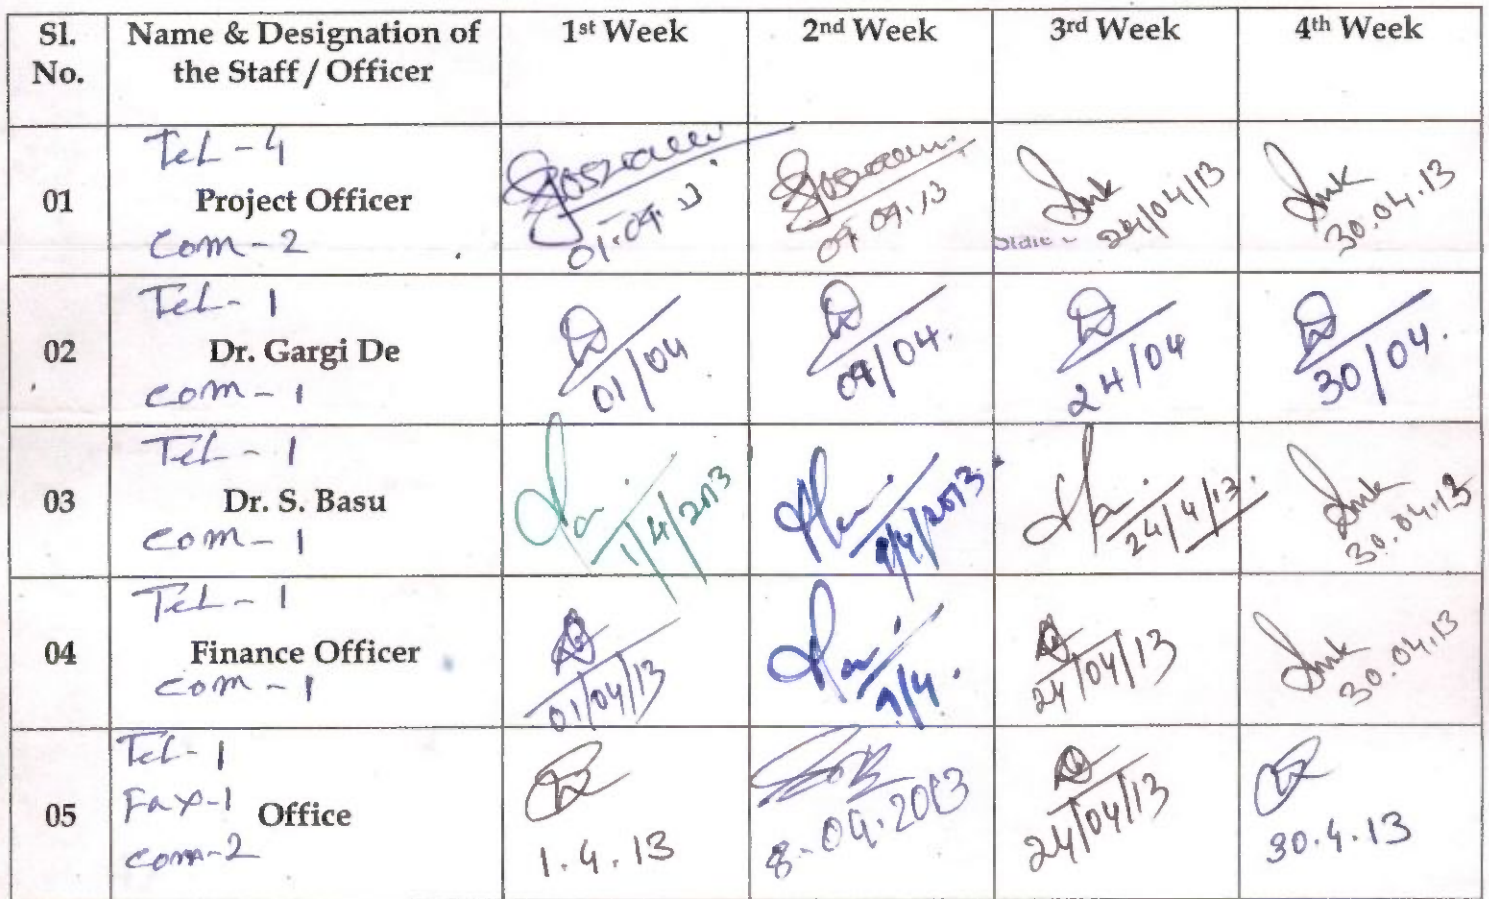 Sl. No.
Name & Designation of the Staff / Officer
1st Week
2nd Week
3rd Week
4th Week
01
Tel - 4
Project Officer
Com - 2
01.04.13
09.04.13
24/04/13
30.04.13
02
Tel - 1
Dr. Gargi De
Com - 1
01/04
09/04.
24/04
30/04.
03
Tel - 1
Dr. S. Basu
Com - 1
1/4/2013
9/4/2013
24/4/13.
30.04.13
04
Tel - 1
Finance Officer
Com - 1
01/04/13
9/4.
24/04/13
30.04.13
05
Tel - 1
Fax-1
Office
Com-2
1.4.13
8-04.2013
24/04/13
30.4.13